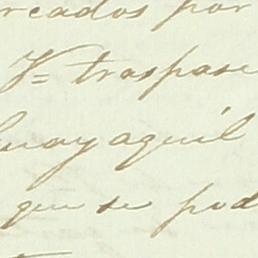 reados por
V= traspase
Guayaquil
que se pod